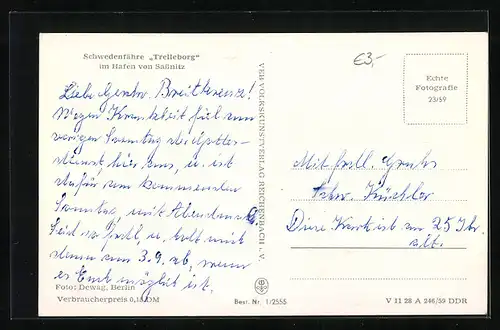 Schwedenfähre „Trelleborg"
im Hafen von Saßnitz
Liebe Geschw. Breitkreuz!
Wegen Krankheit fiel am
vorigen Sonntag der Gottes-
dienst hier aus, u. ist
dafür am kommenden
Sonntag, mit Abendmahl.
Seid so frdl. u.
dann am 3.9. ab, wenn
es Euch möglich ist.
Foto: Dewag, Berlin
Verbraucherpreis 0,18 DM
Best. Nr. 1/2555
VEB VOLKSKUNSTVERLAG REICHENBACH i. V.
€3,-
Echte
Fotografie
23/59
Mit frdl. Gruß
Küchler
Diese Karte ist am 25 Jhr.
alt.
V 11 28 A 246/59 DDR